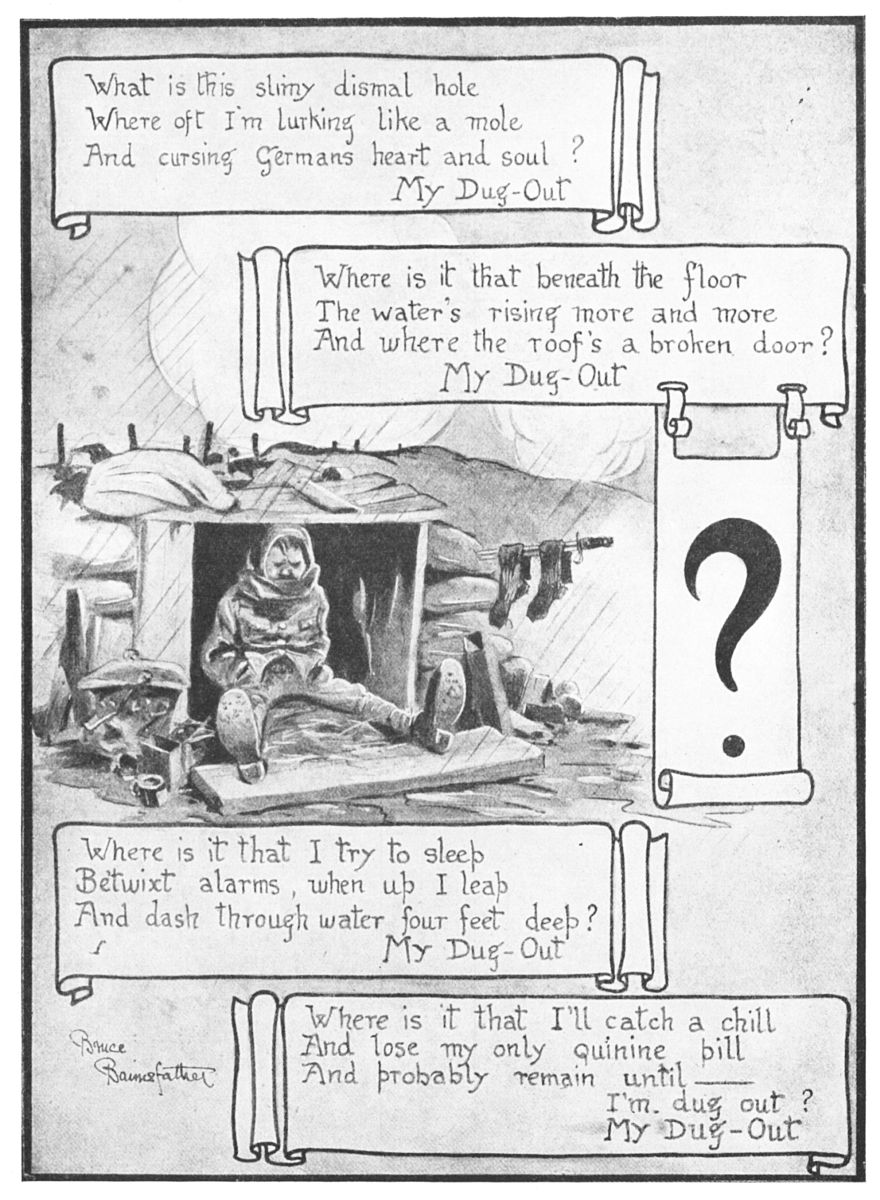 What is this slimy dismal hole
Where oft I'm lurking like a mole
And cursing Germans heart and soul ?
My Dug-Out
Where is it that beneath the floor
The water's rising more and more
And where the roof's a broken door ?
My Dug-Out
?
Where is it that I try to sleep
Betwixt alarms, when up I leap
And dash through water four feet deep ?
My Dug-Out
Where is it that I'll catch a chill
And lose my only quinine pill
And probably remain until ——
I'm dug out ?
My Dug-Out
Bruce
Bairnsfather